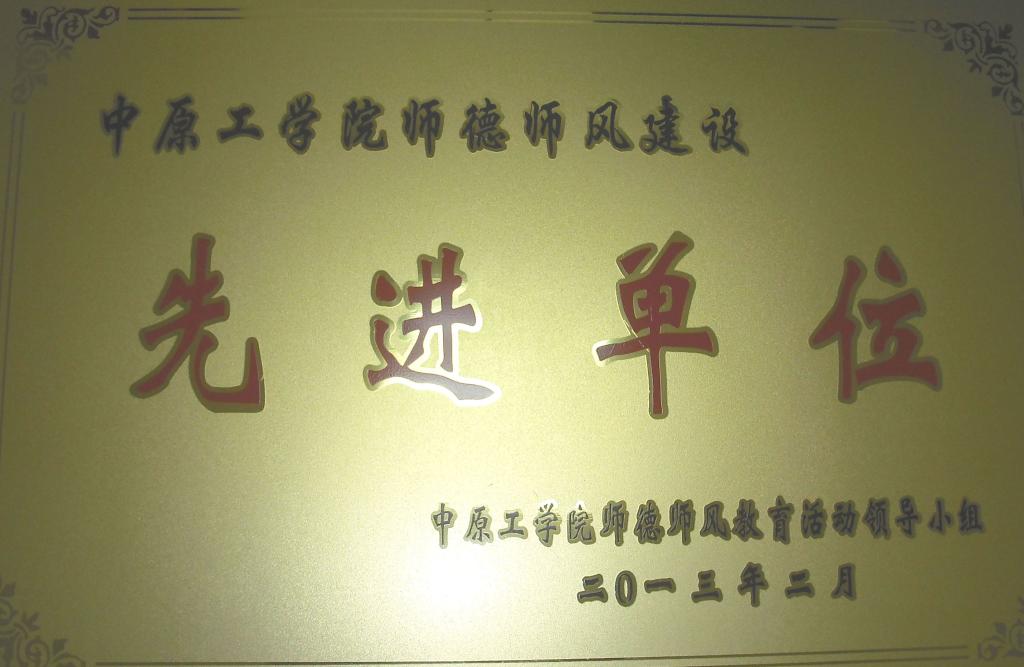 中原工学院师德师风建设
先进单位
中原工学院师德师风教育活动领导小组
二0一三年二月